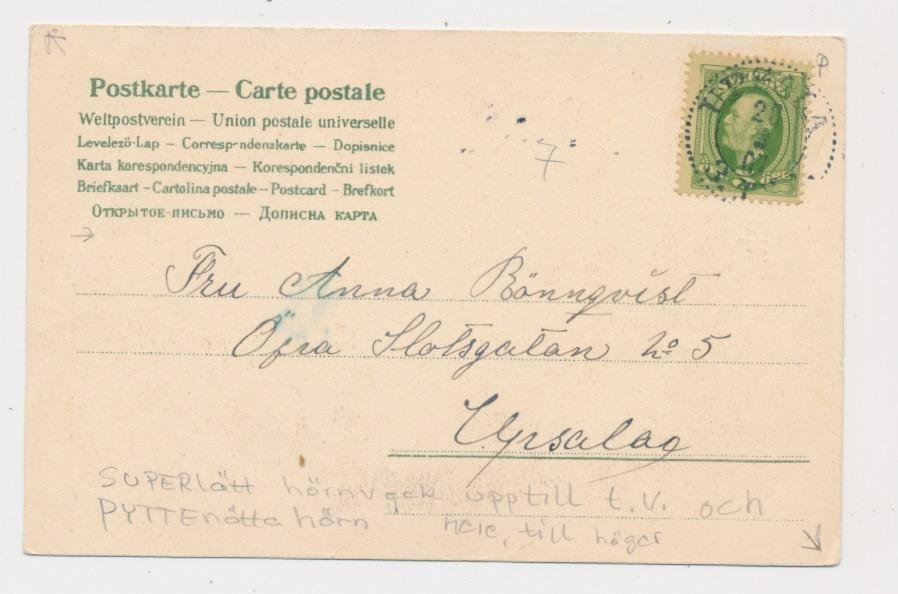 Postkarte — Carte postale
Weltpostverein — Union postale universelle
Levelező-Lap — Correspondenzkarte — Dopisnice
Karta korespondencyjna — Korespondenční listek
Briefkaart — Cartolina postale — Postcard — Brefkort
Открытое письмо — Дописна карта
7
Fru Anna Bönnqvist
Öfra Slotsgatan No 5
Upsala
SUPERlätt hörnveck upptill t.v. och
PYTTEnötta hörn
till höger